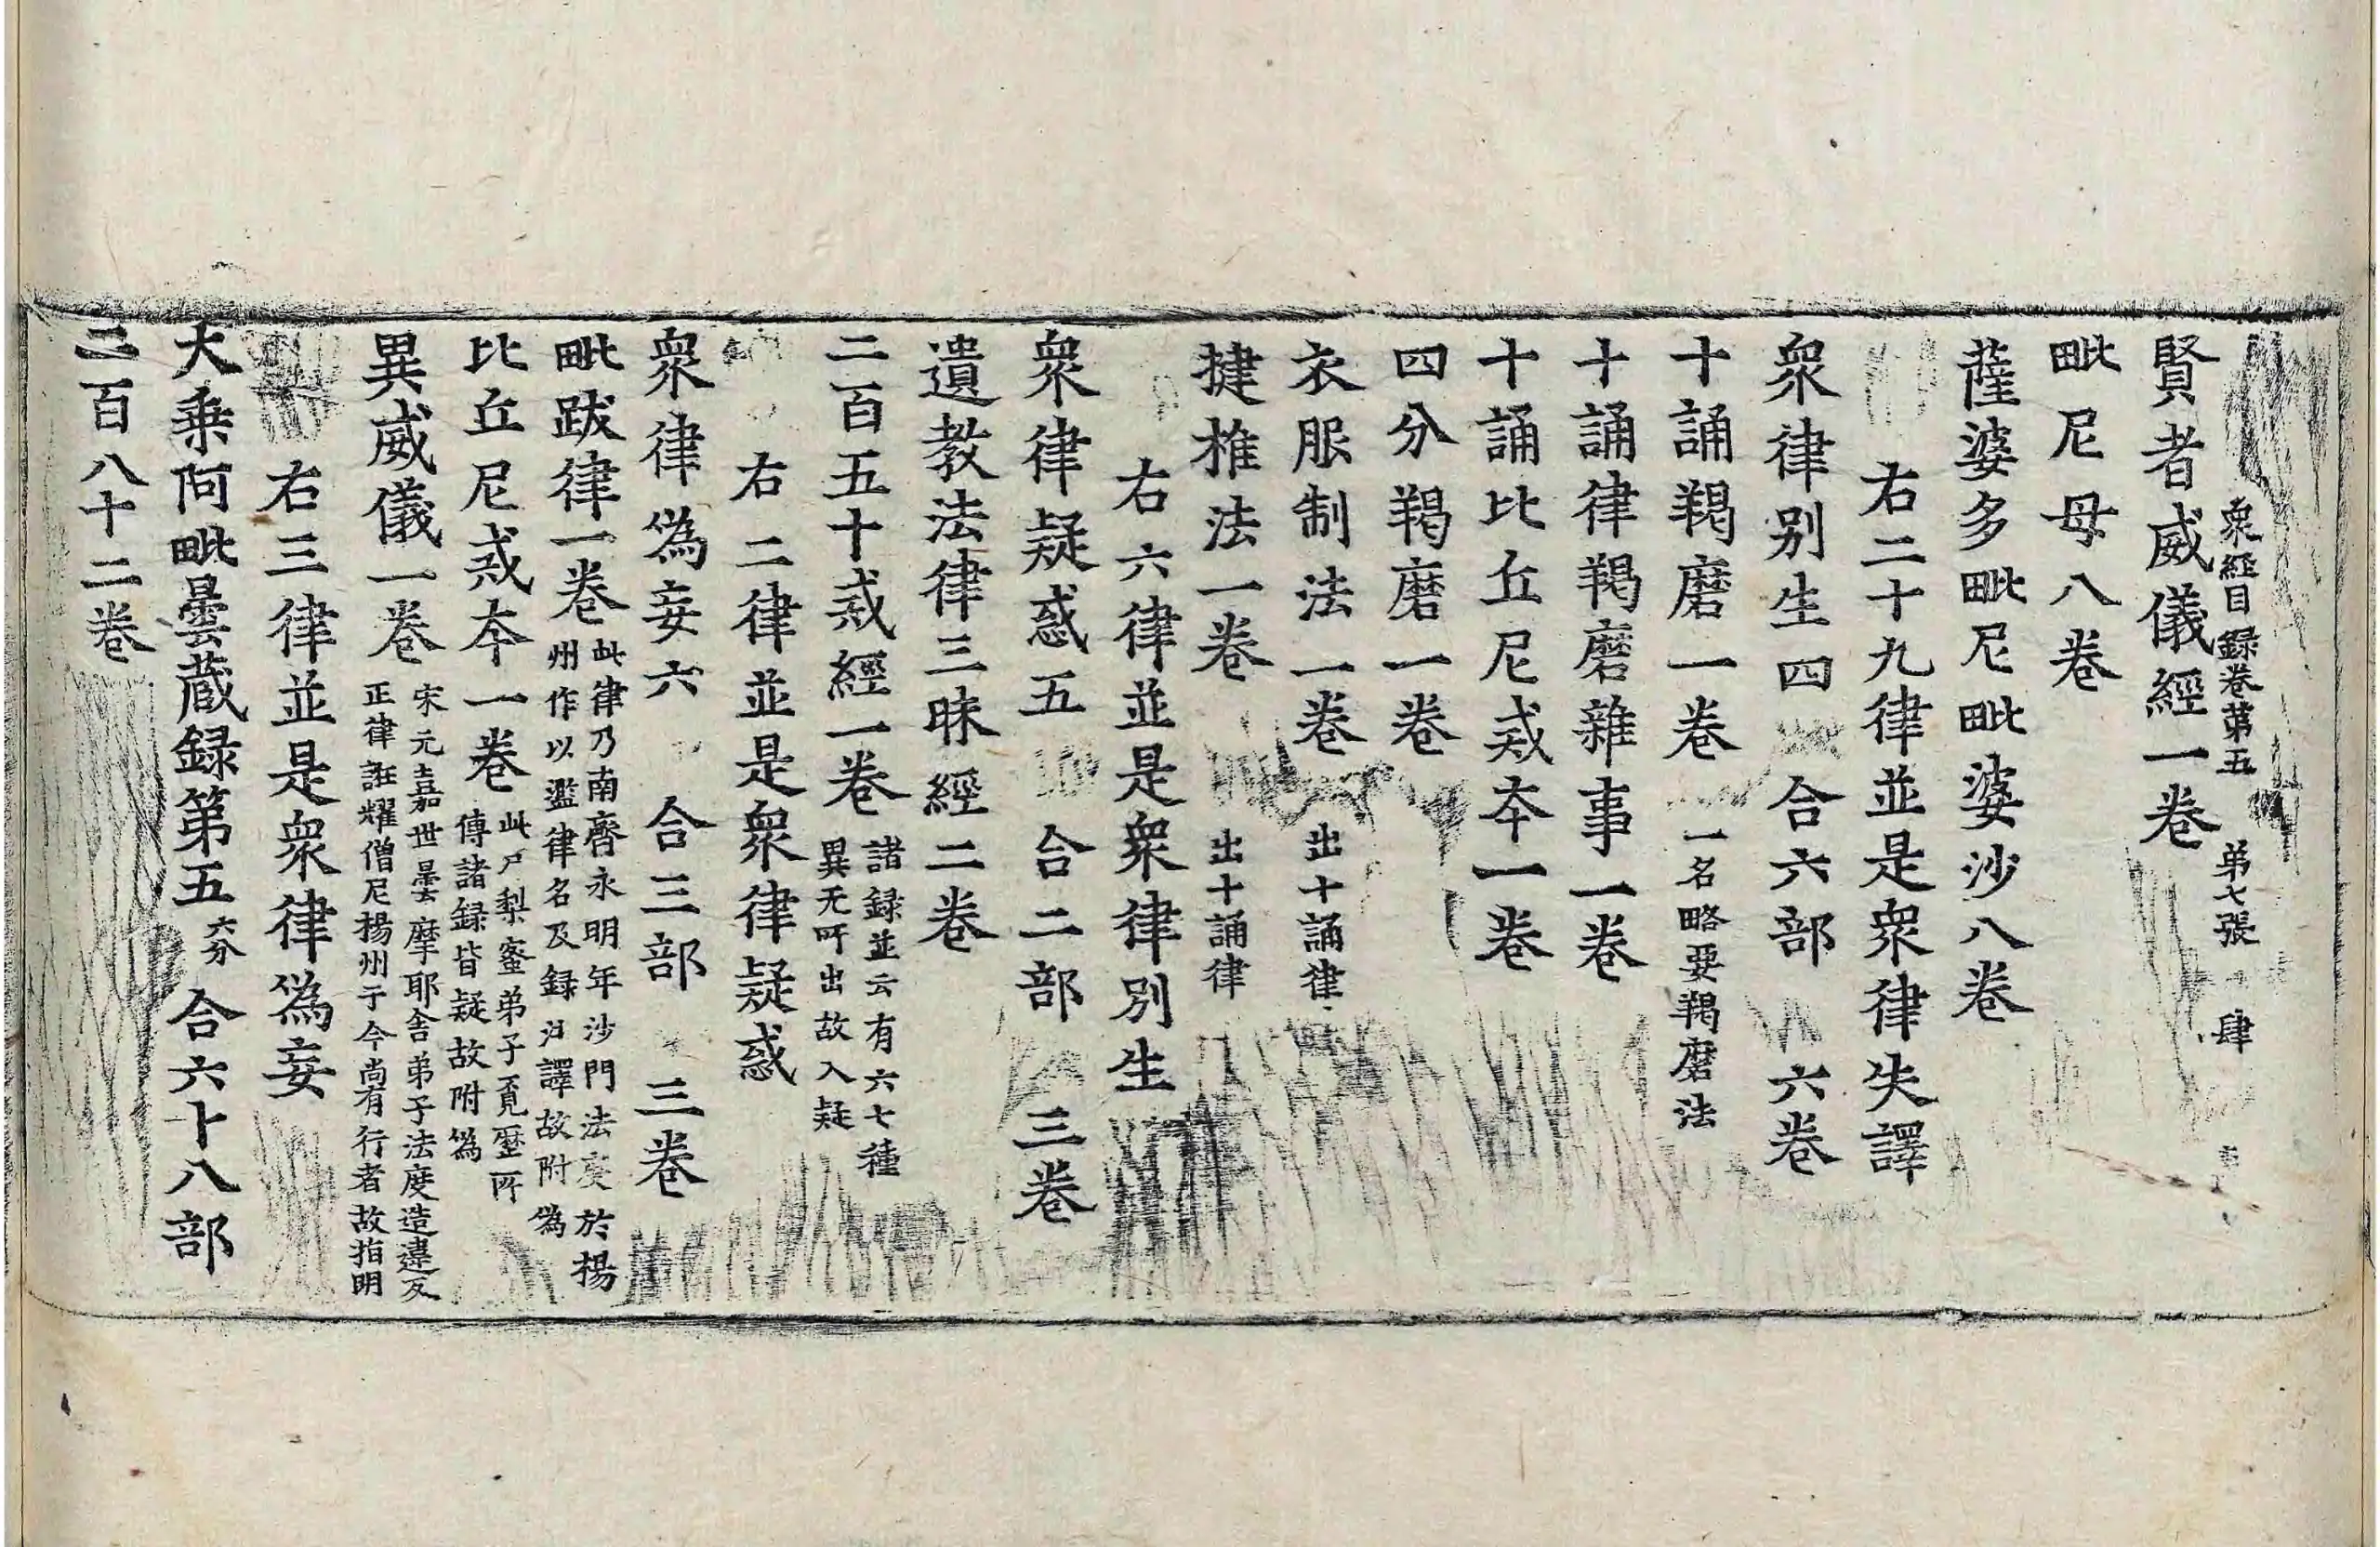 賢者威儀經一卷
衆經目録卷第五　弟七張　肆
毗尼母八卷
薩婆多毗尼毗婆沙八卷
右二十九律並是衆律失譯
衆律別生四　合六部　六卷
十誦羯磨一卷 一名略要羯磨法
十誦律羯磨雜事一卷
十誦比丘尼戒本一卷
四分羯磨一卷
衣服制法一卷 出十誦律
揵椎法一卷 出十誦律
右六律並是衆律別生
衆律疑惑五　合二部　三卷
遺教法律三昧經二卷
二百五十戒經一卷 諸録並云有六七種
異无所出故入疑
右二律並是衆律疑惑
衆律偽妄六　合三部　三卷
毗跋律一卷 此律乃南齊永明年沙門法度於揚
州作以濫律名及録注譯故附偽
比丘尼戒本一卷 此尸梨蜜弟子覓歷所
傳諸録皆疑故附偽
異威儀一卷 宋元嘉世曇摩耶舍弟子法度造違反
正律誑耀僧尼揚州于今尚有行者故指明
右三律並是衆律偽妄
大乘阿毗曇蔵録第五 六分　合六十八部
二百八十二卷